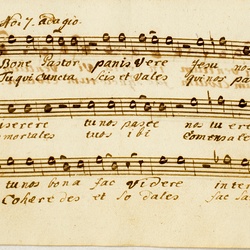 No: 7. adagio.
Bone Pastor panis vere Jesu nos
Tu qui cuncta scis et vales qui nos pas
iserere tu nos pasce nos tu ere
mortales tuos ibi Comensales
tu nos bona fac videre in te
Cohæredes et sodales fac sa